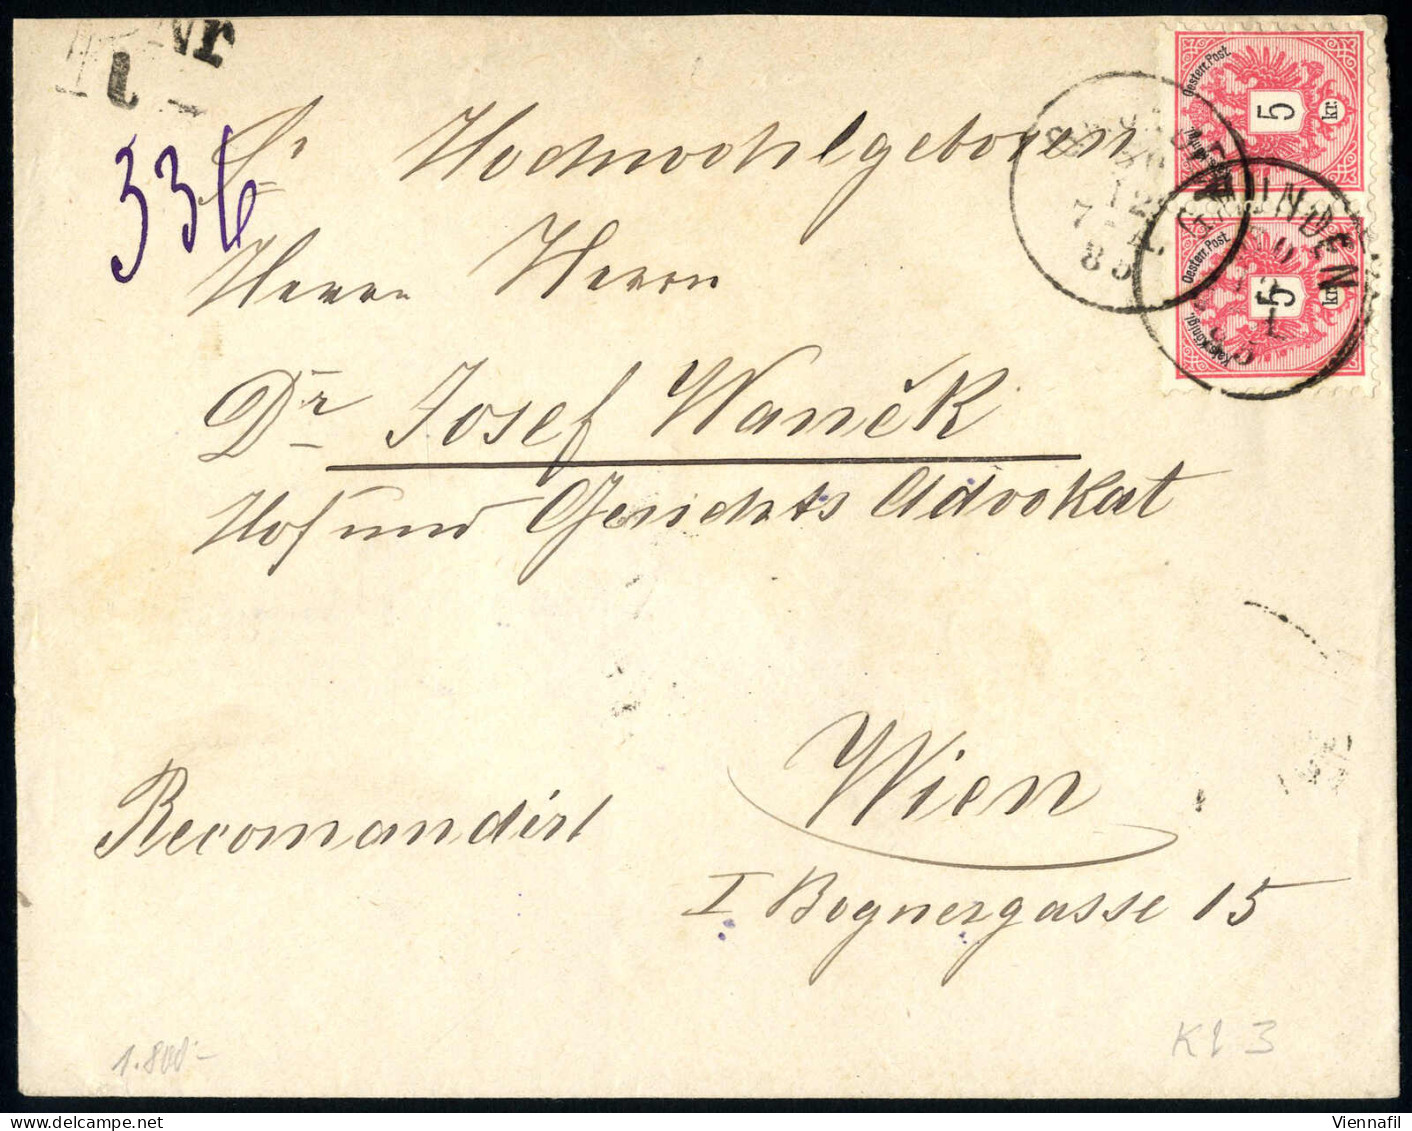 Nr
336
Sr Hochwohlgeboren
Herrn Herrn
Dr Josef Waněk
Hof und Gerichts Advokat
Wien
Recomandirt
I Bognergasse 15
Oesterr. Post.
5
kr.
GMUNDEN
12
7-A
85
Oesterr. Post.
5
kr.
Kais. Königl.
1.800-
K 2 3
Viennafil